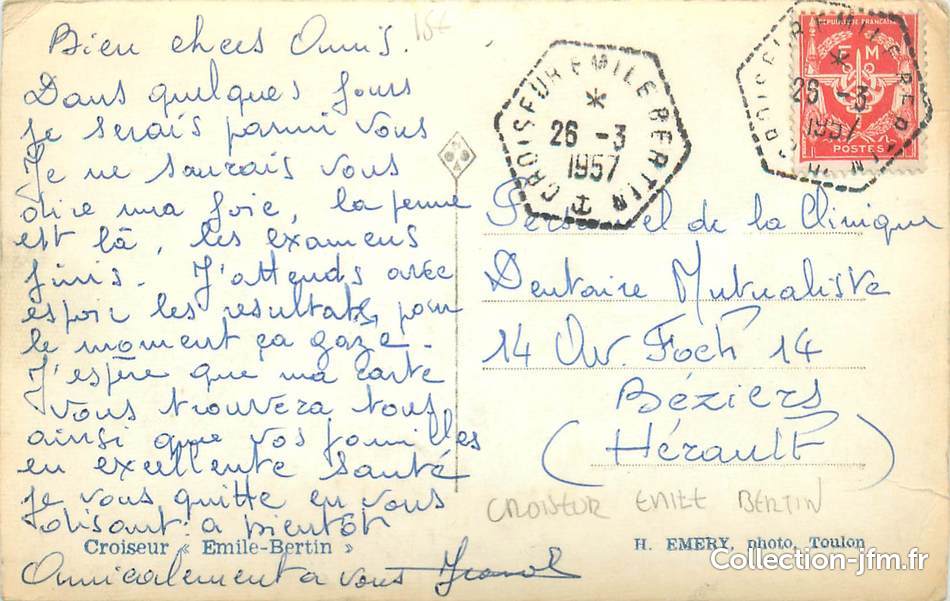 18€
Bien chers Amis.
Dans quelques jours
je serais parmi vous
Je ne saurais vous
dire ma joie, la perme
est là, les examens
finis. J'attends avec
espoir les resultats, pour
le moment ça gaze.
J'espère que ma carte
vous trouvera tous
ainsi que vos familles
en excellente santé
je vous quitte en vous
disant: a bientôt
Amicalement a vous
Croiseur « Emile-Bertin »
CROISEUR EMILE BERTIN
26 -3
1957
REPUBLIQUE FRANÇAISE
F M
POSTES
CROISEUR EMILE BERTIN
26 -3
1957
Personnel de la Clinique
Dentaire Mutualiste
14 Av. Foch 14
Béziers
(Hérault)
CROISEUR EMILE BERTIN
H. EMERY, photo, Toulon
Collection-jfm.fr